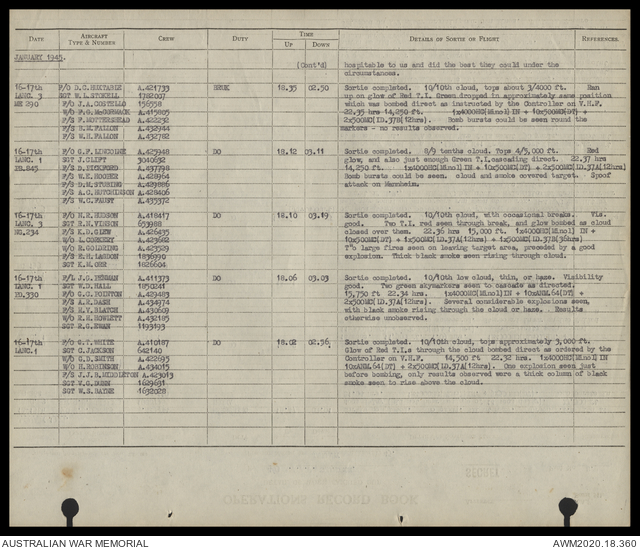 DATE AIRCRAFT TYPE & NUMBER CREW DUTY TIME UP DOWN DETAILS OF SORTIE OR FLIGHT REFERENCES.
JANUARY 1945.
(Cont'd) hospitable to us and did the best they could under the
circumstances.
16-17th F/O D.C. A.421733 18.35 02.50 Sortie completed. 10/10th cloud, tops about 3/4000 ft. Ran
LANC. 3 SGT W.L. STOKELL 1782007 up on glow of Red T.I. Green dropped in approximately same position
ME 290 F/O J.A. COSTELLO 156558 which was bombed direct as instructed by the Controller on V.H.F.
W/O F.G. McCORMACK A.415805 22.35 hrs 14,250 ft. 1x4000HC(Minol)IN + 10x500MC(DT) +
F/S F. MOTTERSHEAD A.422232 2x500MC(LD.37B(12hrs). Bomb bursts could be seen round the
F/S B.M. FALLON A.432944 markers - no results observed.
F/S W.H. FALLON A.432782
16-17th F/O G.F. A.425948 DO 18.12 03.11 Sortie completed. 8/9 tenths cloud. Tops 4/5,000 ft. Red
LANC. 1 SGT J. CLIFT 3040632 glow, and also just enough Green T.I. cascading direct. 22.37 hrs
PB.845 F/S D. PICKFORD A.437798 14,250 ft. 1x4000HC(Minol)IN + 10x500MC(DT) + 2x500MC(LD.37A(12hrs).
F/S W.K. HOOPER A.428964 Bomb bursts could be seen. cloud and smoke covered target. Spoof
F/S D.M. STUBING A.429886 attack on Mannheim.
F/S A.C. HUTCHINSON A.428406
F/S W.C. FAUST A.435372
16-17th F/O N.R. HUDSON A.418417 DO 18.10 03.19 Sortie completed. 10/10th cloud, with occasional breaks. Vis.
LANC. 3 SGT R.H. VINSON 653988 good. Two T.I. red seen through break, and glow bombed as cloud
F/S K.D. GLEW A.426435 closed over them. 22.36 hrs 15,000 ft. 1x4000HC(Minol) IN +
W/O L. CORKERY A.423682 10x500MC(DT) + 1x500MC(LD.37A(12hrs) + 1x500MC(LD.37B(36hrs)
W/O R. GOLDRING A.423529 Two large fires seen on leaving target area, preceded by a good
F/S E.H. LANDON 1836990 explosion. Thick black smoke seen rising through cloud.
SGT K.M. ORR 1826604
16-17th F/L J.G. A.411373 DO 18.06 03.03 Sortie completed. 10/10th low cloud, thin, or haze. Visibility
LANC. 1 SGT W.D. HALL 1850241 good. Two green skymarkers seen to cascade as directed.
PD.330 F/O G.C. POINTON A.429483 15,750 ft 22.34 hrs. 1x4000HC(Minol)IN + 10xANM.64(DT) +
F/S A.R. DASH A.434974 2x500MC(LD.37A(12hrs). Several considerable explosions seen,
F/S M.V. BLATCH A.430609 with black smoke rising through the cloud or haze. Results
W/O R.M. HOWLETT A.432185 otherwise unobserved.
SGT R.G. EWAN 1193193
16-17th F/O G.T. WHITE A.410187 DO 18.02 02.56 Sortie completed. 10/10th cloud, tops approximately 3,000 ft.
LANC.1 SGT C. JACKSON 642140 Glow of Red T.I.s through the cloud bombed direct as ordered by the
W/O G.D. SMITH A.422693 Controller on V.H.F. 14,500 ft 22.32 hrs. 1x4000HC(Minol) IN
W/O H. ROBINSON A.434015 10xANM.64(DT) + 2x500MC(LD.37A(12hrs). One explosion seen just
F/S J.J.B. MIDDLETON A.423013 before bombing, only results observed were a thick column of black
SGT V.C. DUNN 1629631 smoke seen to rise above the cloud.
SGT W.S. HAYNE 1632028
AUSTRALIAN WAR MEMORIAL AWM2020.18.360